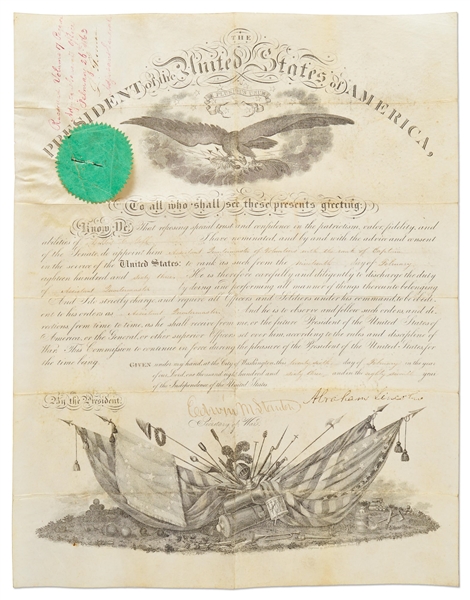 THE
PRESIDENT of the United States of AMERICA,
To all who shall see these presents greeting:
Know Ye, That reposing special trust and confidence in the patriotism, valor, fidelity, and
abilities of I have nominated, and by and with the advice and consent
of the Senate do appoint him Assistant
in the service of the United States: to rank as such from the nineteenth day of February
eighteen hundred and sixty three. He is therefore carefully and diligently to discharge the duty
of Assistant Quartermaster by doing and performing all manner of things thereunto belonging.
And I do strictly charge and require all Officers and Soldiers under his command to be obedi-
ent to his orders as Assistant Quartermaster. And he is to observe and follow such orders and di-
rections from time to time, as he shall receive from me or the future President of the United States of
America, or the General or other superior Officers set over him according to the rules and discipline of
War. This Commission to continue in force during the pleasure of the President of the United States, for
the time being.
GIVEN under my hand at the City of Washington this day of February in the year
of our Lord one thousand eight hundred and sixty three and in the eighty seventh year
of the Independence of the United States.
By the President
Abraham Lincoln
Edwin M Stanton
Secretary of War.